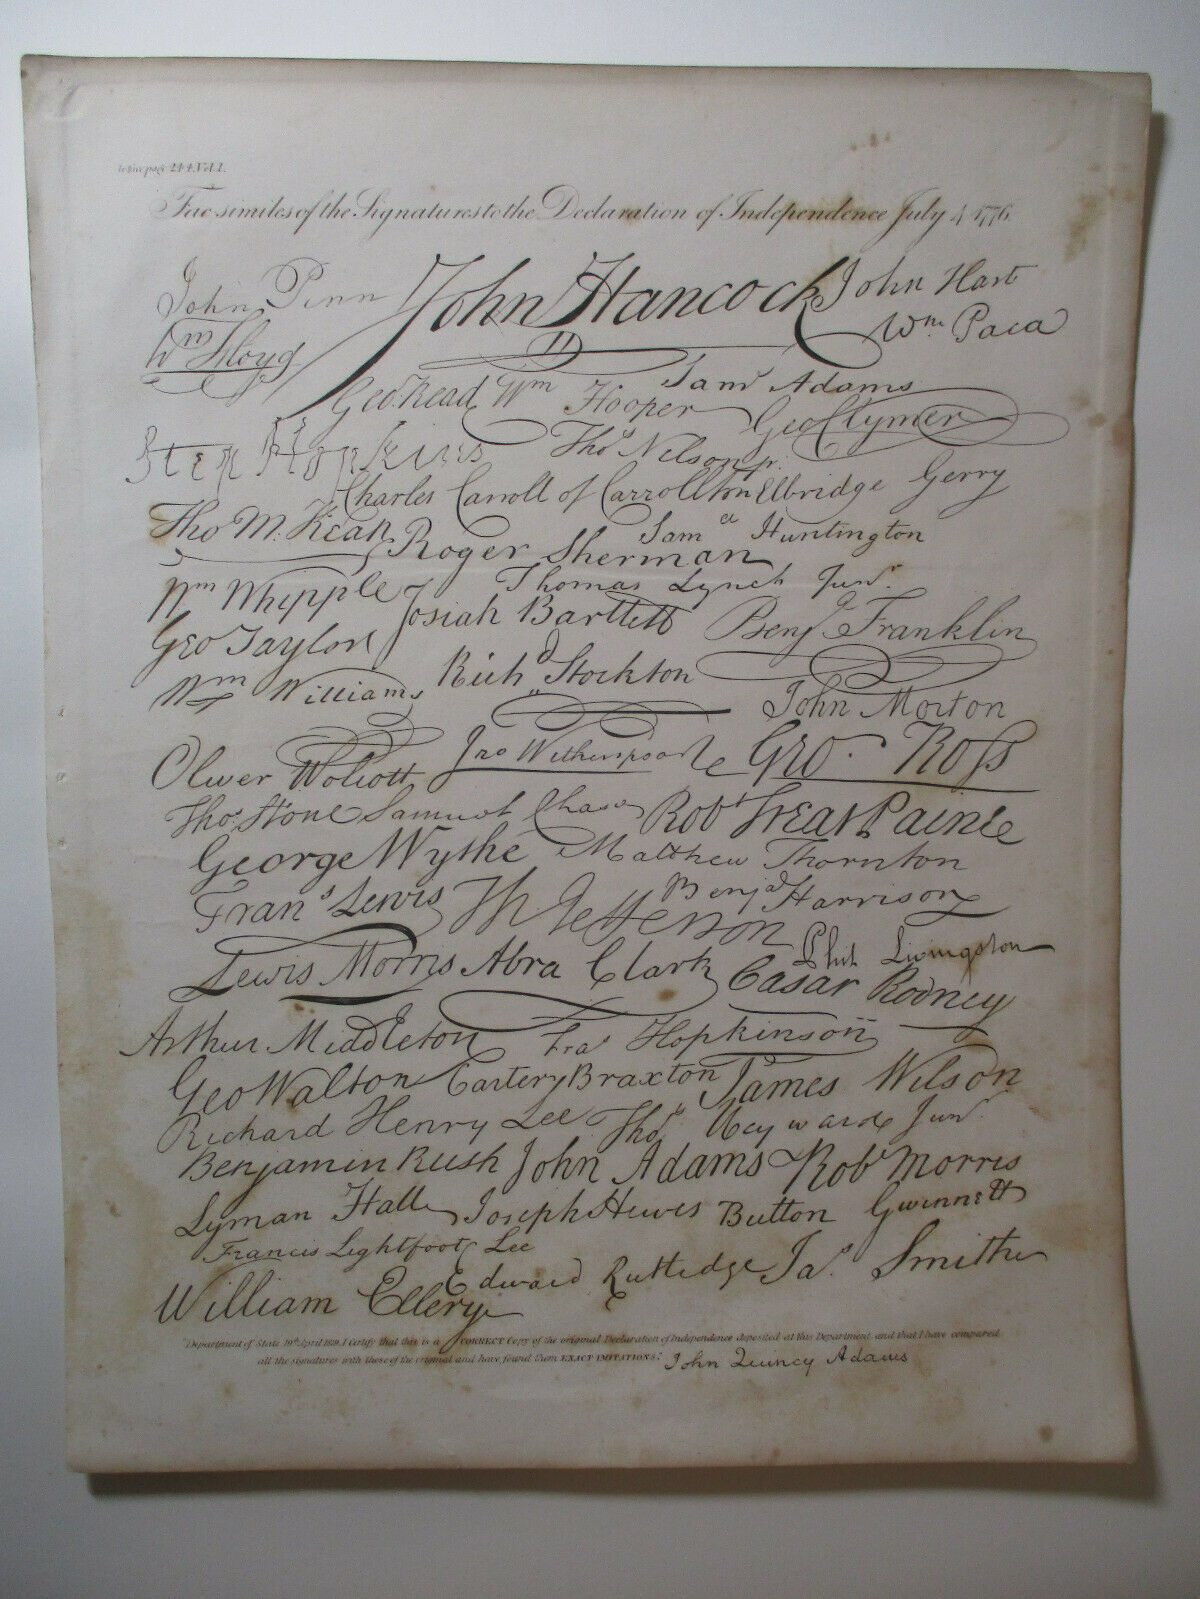 to face page 244. Vol. I.
Fac similes of the Signatures to the Declaration of Independence July 4 1776
John Penn John Hancock John Hart
Wm Floyd Wm Paca
Geo. Read Wm Hooper Saml Adams
Geo Clymer
Step Hopkins Thos Nelson jr.
Charles Carroll of Carrollton Elbridge Gerry
Tho M:Kean Roger Sherman Sam el Huntington
Wm Whipple Thomas Lynch Junr
Josiah Bartlett Benja Franklin
Geo Taylor
Richd Stockton
Wm Williams John Morton
Oliver Wolcott Jno Witherspoon Geo. Ross
Thos. Stone Samuel Chase Robt Treat Paine
George Wythe Matthew Thornton
Frans Lewis Th Jefferson Benja Harrison
Lewis Morris Abra Clark Phil Livingston
Casar Rodney
Arthur Middleton Fras Hopkinson
Geo Walton Carter Braxton James Wilson
Richard Henry Lee Thos Heyward Junr
Benjamin Rush John Adams Robt Morris
Lyman Hall Joseph Hewes Button Gwinnett
Francis Lightfoot Lee
William Ellery Edward Rutledge Jas Smith
"Department of State 19th April 1819. I Certify that this is a CORRECT Copy of the original Declaration of Independence deposited at this Department and that I have compared
all the signatures with those of the original and have found them EXACT IMITATIONS." John Quincy Adams